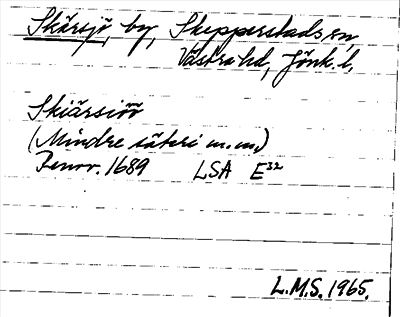 Skärsjö, by, Skepperstads sn
Västra hd, Jönk. l.
Skiärsiöö
(Mindre säteri m.m.)
Renov. 1689 LSA E³²
L.M.S. 1965.